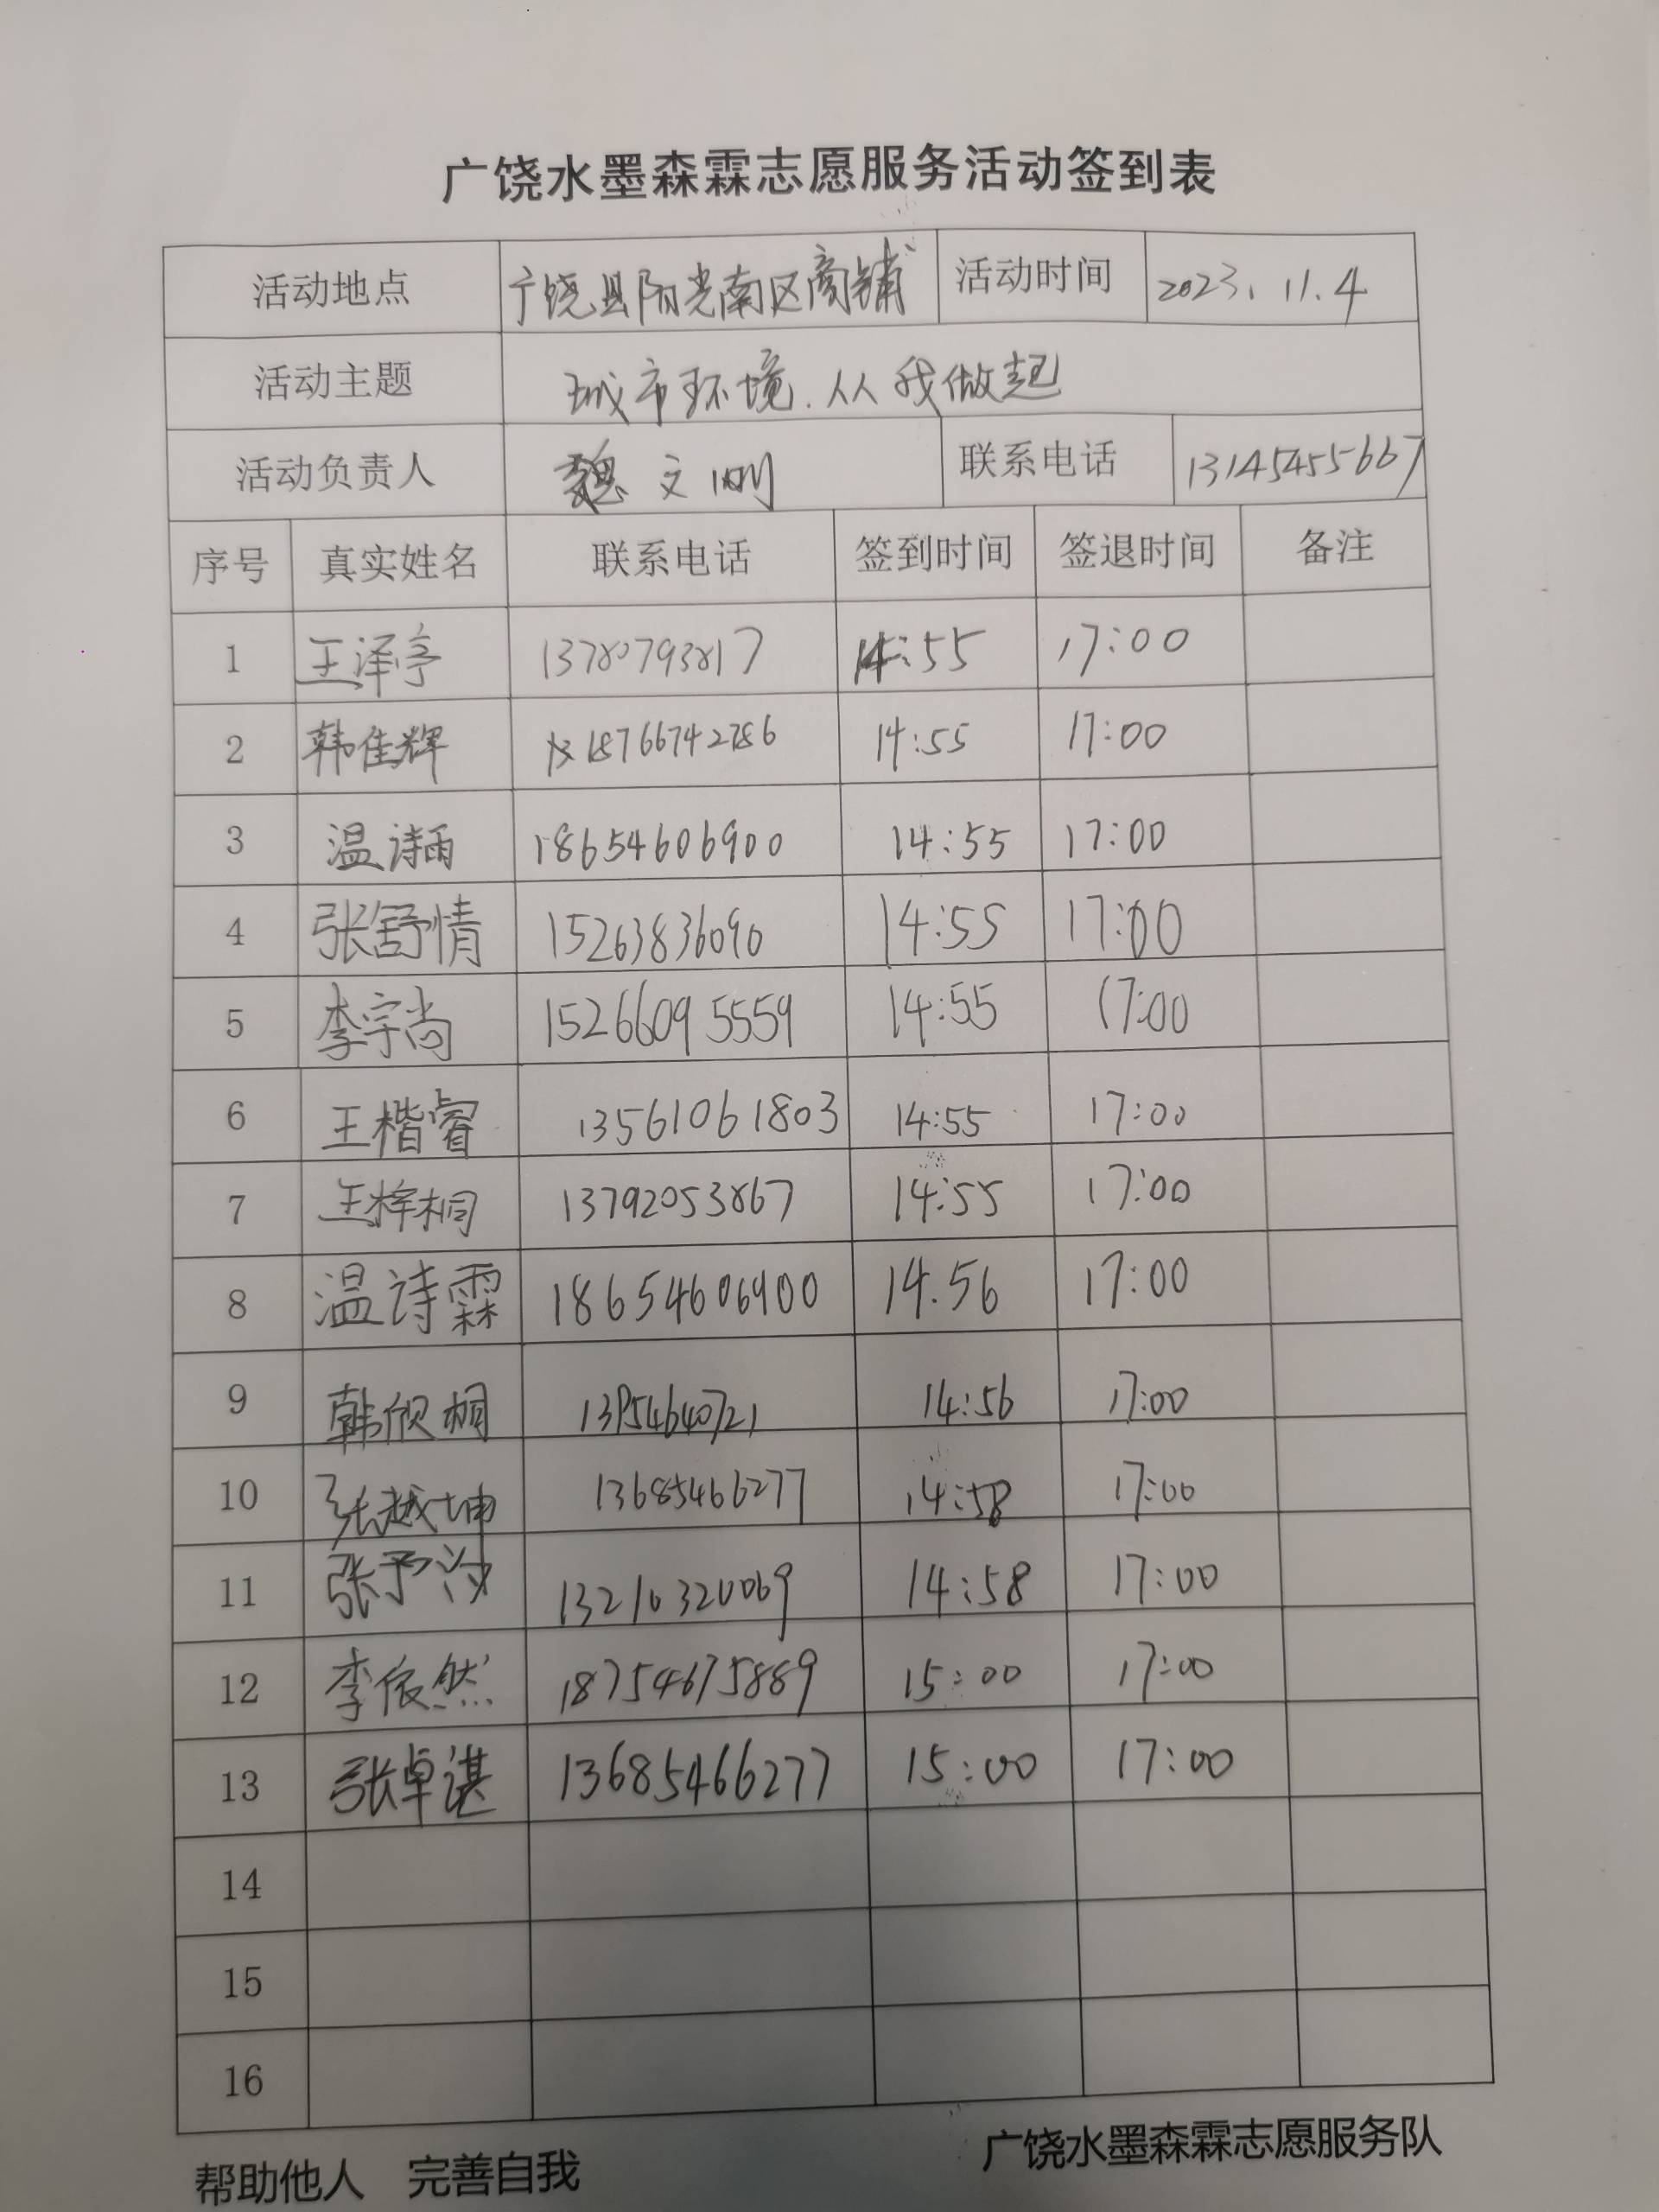 广饶水墨森霖志愿服务活动签到表
活动地点 广饶县阳光南区商铺 活动时间 2023.11.4
活动主题 城市环境.从我做起
活动负责人 魏文刚 联系电话 13145455667
序号 真实姓名 联系电话 签到时间 签退时间 备注
1 王泽亭 13780793817 14:55 17:00
2 韩佳辉 18766742786 14:55 17:00
3 温诗雨 18654606900 14:55 17:00
4 张舒情 15263836090 14:55 17:00
5 李宇尚 15266095559 14:55 17:00
6 王楷睿 13561061803 14:55 17:00
7 王梓桐 13792053867 14:55 17:00
8 温诗霖 18654606900 14.56 17:00
9 韩欣桐 14:56 17:00
10 张越坤 13685466277 14:58 17:00
11 张予汐 13210320069 14:58 17:00
12 李依然 18754675889 15:00 17:00
13 张卓谌 13685466277 15:00 17:00
14
15
16
帮助他人 完善自我 广饶水墨森霖志愿服务队